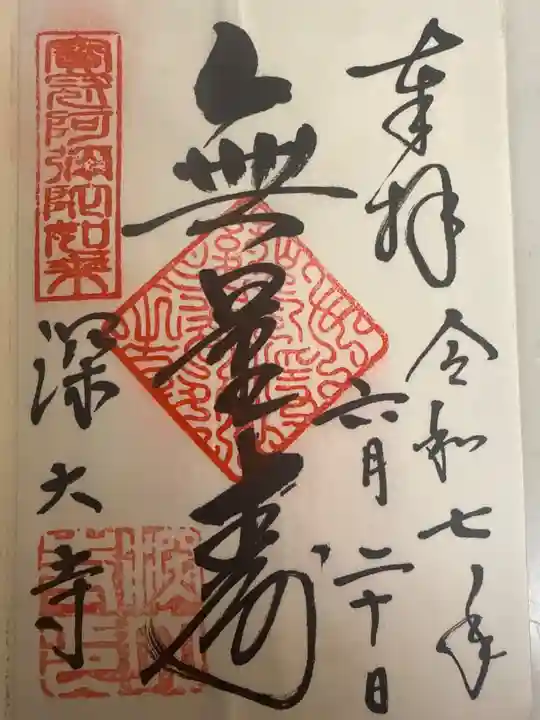 奉拝
令和七年
六月二十日
無量壽
寳冠阿弥陀如来
深大寺